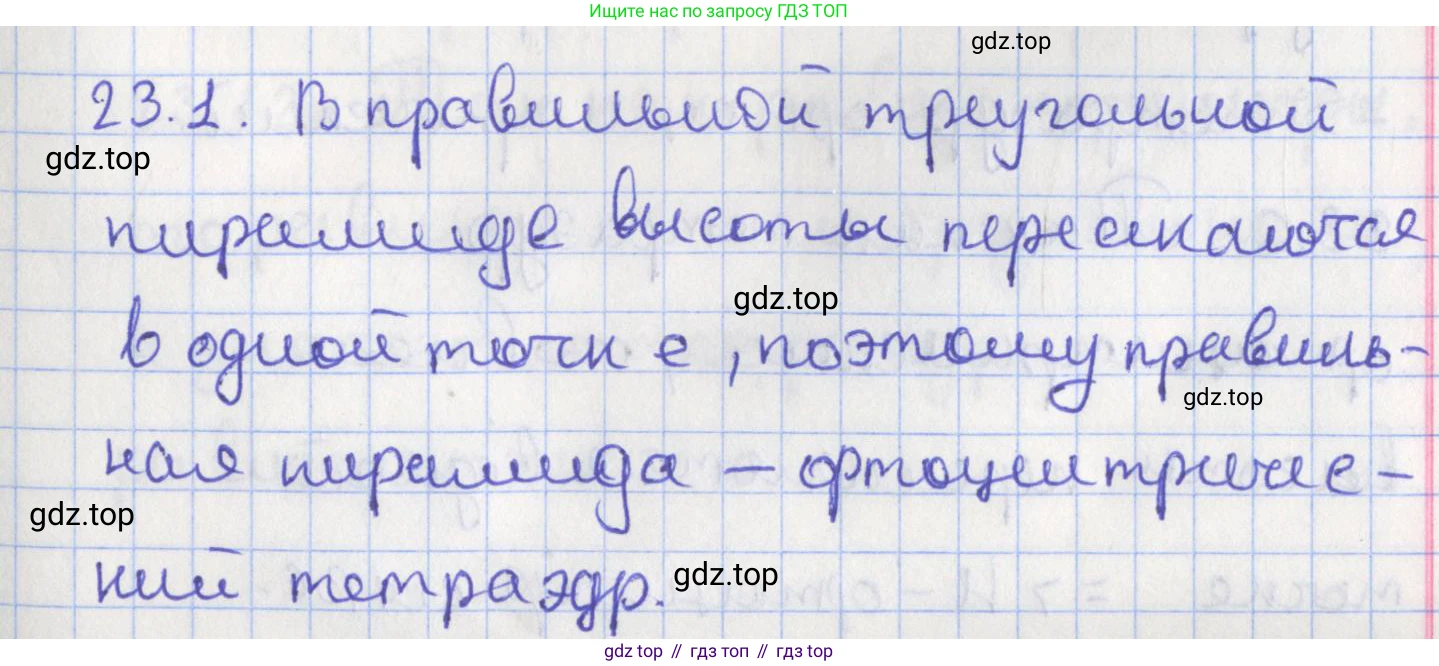 Ищите нас по запросу ГДЗ ТОП
gdz.top
23.1. В правильной треугольной
gdz.top
пирамиде высоты пересекаются
gdz.top
в одной точке, поэтому правиль-
gdz.top
ная пирамида – ортоцентричес-
gdz.top
кий тетраэдр.
gdz.top
gdz top // гдз топ // гдз top